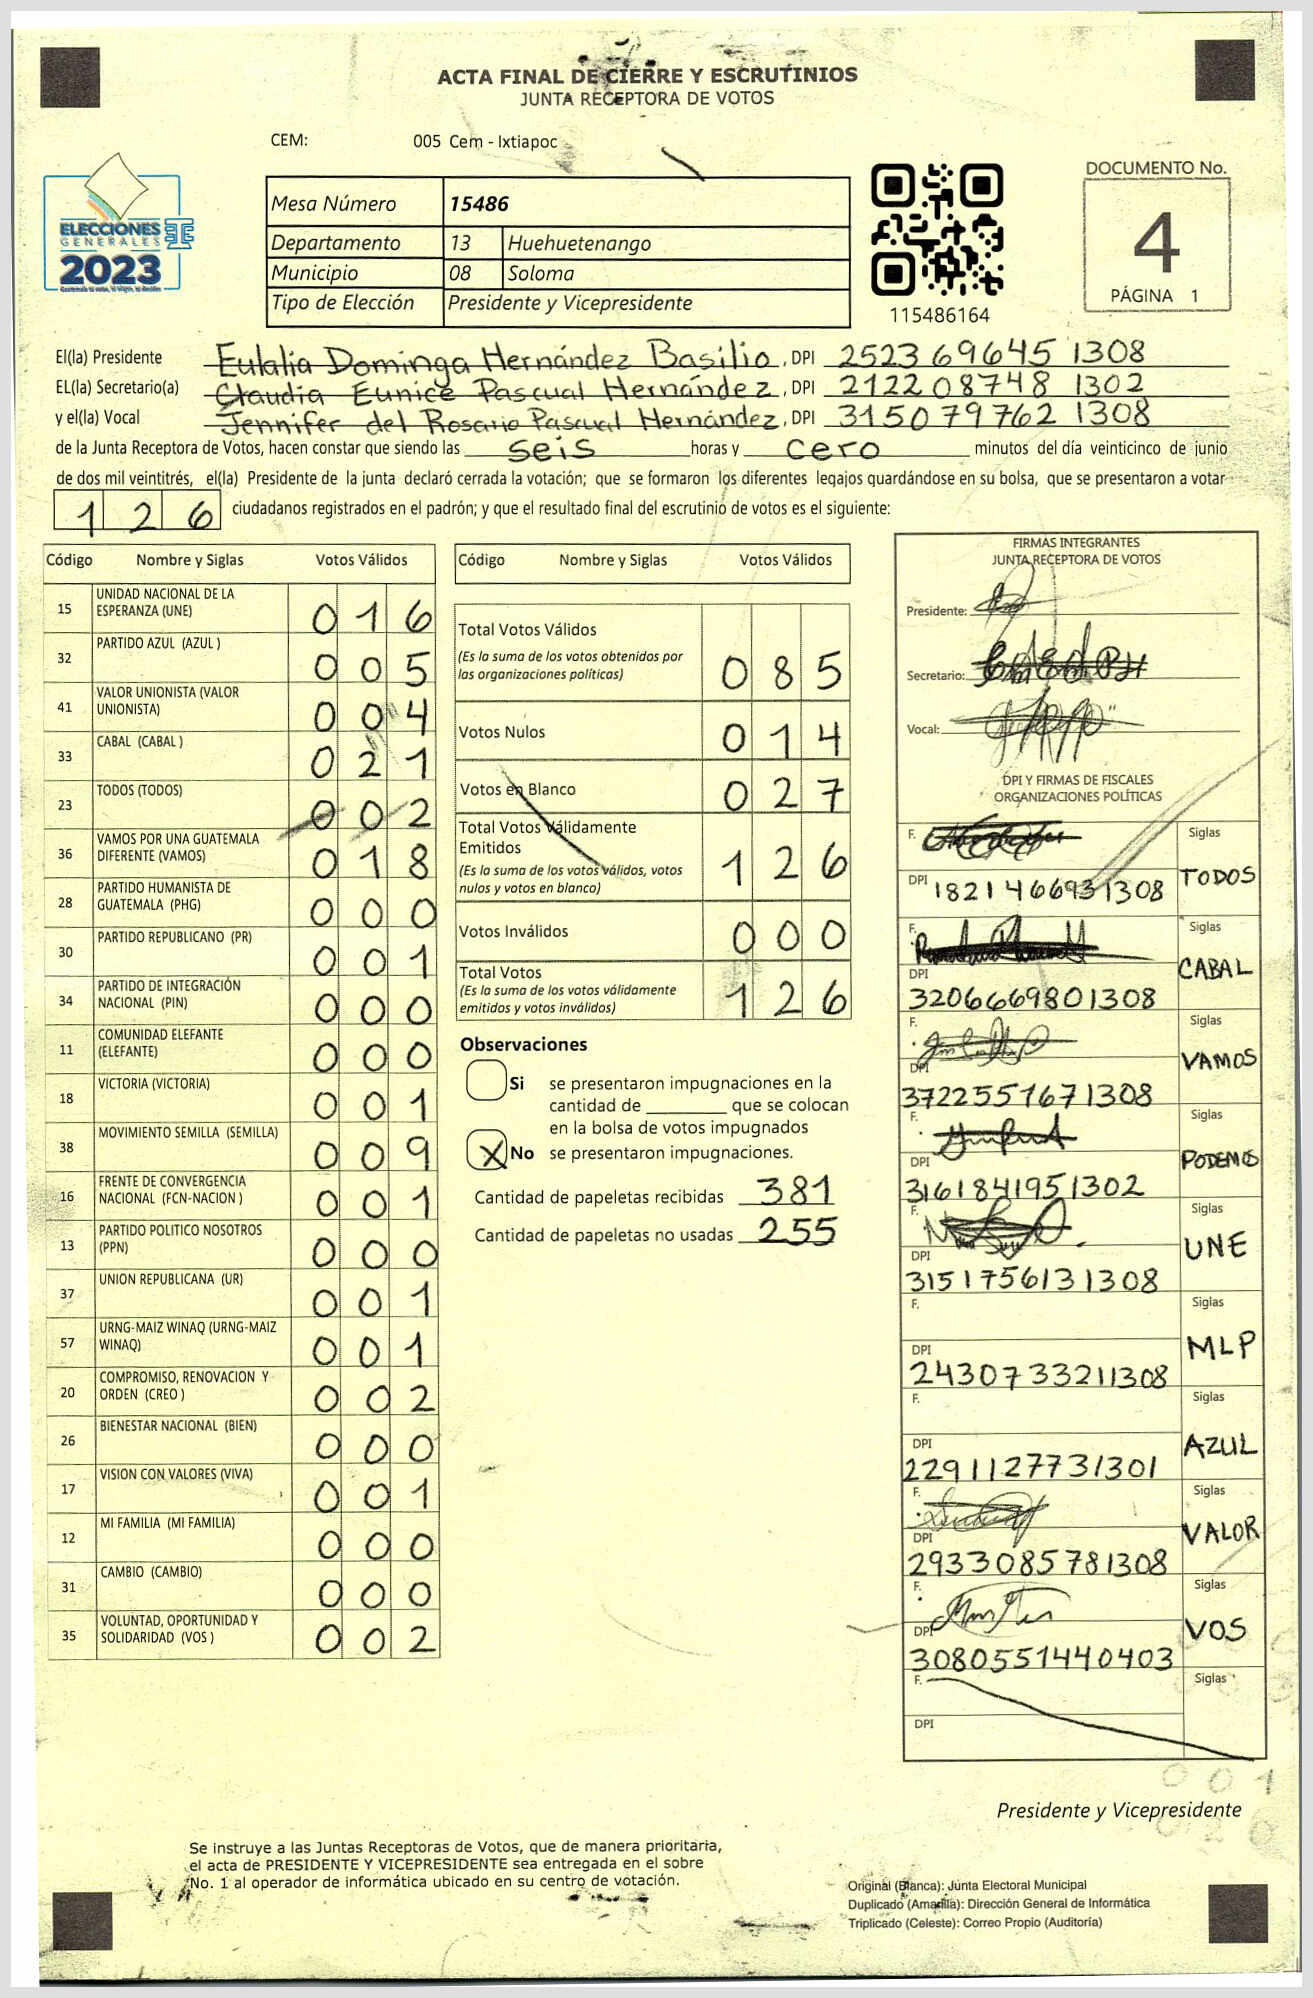 ACTA FINAL DE CIERRE Y ESCRUTINIOS
JUNTA RECEPTORA DE VOTOS
CEM: 005 Cem - Ixtiapoc
ELECCIONES
GENERALES
2023
Mesa Número 15486
Departamento 13 Huehuetenango
Municipio 08 Soloma
Tipo de Elección Presidente y Vicepresidente
115486164
DOCUMENTO No.
4
PÁGINA 1
El(la) Presidente Eulalia Dominga Hernández Basilio, DPI 2523 69645 1308
EL(la) Secretario(a) Claudia Eunice Pascual Hernández, DPI 2122 08748 1302
y el(la) Vocal Jennifer del Rosario Pascual Hernández, DPI 3150 79762 1308
de la Junta Receptora de Votos, hacen constar que siendo las seis horas y cero minutos del día veinticinco de junio
de dos mil veintitrés, el(la) Presidente de la junta declaró cerrada la votación; que se formaron los diferentes legajos guardándose en su bolsa, que se presentaron a votar
126 ciudadanos registrados en el padrón; y que el resultado final del escrutinio de votos es el siguiente:
Código Nombre y Siglas Votos Válidos
15 UNIDAD NACIONAL DE LA ESPERANZA (UNE) 016
32 PARTIDO AZUL (AZUL ) 005
41 VALOR UNIONISTA (VALOR UNIONISTA) 004
33 CABAL (CABAL ) 021
23 TODOS (TODOS) 002
36 VAMOS POR UNA GUATEMALA DIFERENTE (VAMOS) 018
28 PARTIDO HUMANISTA DE GUATEMALA (PHG) 000
30 PARTIDO REPUBLICANO (PR) 001
34 PARTIDO DE INTEGRACIÓN NACIONAL (PIN) 000
11 COMUNIDAD ELEFANTE (ELEFANTE) 000
18 VICTORIA (VICTORIA) 001
38 MOVIMIENTO SEMILLA (SEMILLA) 009
16 FRENTE DE CONVERGENCIA NACIONAL (FCN-NACION ) 001
13 PARTIDO POLITICO NOSOTROS (PPN) 000
37 UNION REPUBLICANA (UR) 001
57 URNG-MAIZ WINAQ (URNG-MAIZ WINAQ) 001
20 COMPROMISO, RENOVACION Y ORDEN (CREO ) 002
26 BIENESTAR NACIONAL (BIEN) 000
17 VISION CON VALORES (VIVA) 001
12 MI FAMILIA (MI FAMILIA) 000
31 CAMBIO (CAMBIO) 000
35 VOLUNTAD, OPORTUNIDAD Y SOLIDARIDAD (VOS ) 002
Código Nombre y Siglas Votos Válidos
Total Votos Válidos
(Es la suma de los votos obtenidos por
las organizaciones políticas) 085
Votos Nulos 014
Votos en Blanco 027
Total Votos Válidamente
Emitidos
(Es la suma de los votos válidos, votos
nulos y votos en blanco) 126
Votos Inválidos 000
Total Votos
(Es la suma de los votos válidamente
emitidos y votos inválidos) 126
Observaciones
Si se presentaron impugnaciones en la
cantidad de ________ que se colocan
en la bolsa de votos impugnados
X No se presentaron impugnaciones.
Cantidad de papeletas recibidas 381
Cantidad de papeletas no usadas 255
FIRMAS INTEGRANTES
JUNTA RECEPTORA DE VOTOS
Presidente:
Secretario:
Vocal:
DPI Y FIRMAS DE FISCALES
ORGANIZACIONES POLÍTICAS
F. Siglas
DPI 1821466931308 TODOS
F. Siglas
DPI 3206669801308 CABAL
F. Siglas
DPI 3722551671308 VAMOS
F. Siglas
DPI 3161841951302 PODEMOS
F. Siglas
DPI 3151756131308 UNE
F. Siglas
DPI 2430733211308 MLP
F. Siglas
DPI 2291127731301 AZUL
F. Siglas
DPI 2933085781308 VALOR
F. Siglas
DPI 3080551440403 VOS
F. Siglas
DPI
Presidente y Vicepresidente
Se instruye a las Juntas Receptoras de Votos, que de manera prioritaria,
el acta de PRESIDENTE Y VICEPRESIDENTE sea entregada en el sobre
No. 1 al operador de informática ubicado en su centro de votación.
Original (Blanca): Junta Electoral Municipal
Duplicado (Amarilla): Dirección General de Informática
Triplicado (Celeste): Correo Propio (Auditoría)